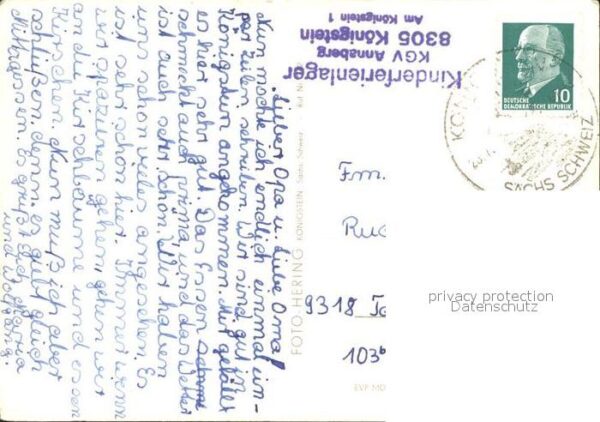 Lieber Opa u. liebe Oma!
Nun möchte ich endlich einmal ein-
par zeilen schreiben. Wir sind gut in
Königstein angekommen. Mir gefällt
es hier sehr gut. Das Essen
schmeckt auch prima, und das Wetter
ist auch sehr schön. Wir haben
uns schon vieles angesehen. Es
ist sehr schön hier. Immer wenn
wir spazieren gehen, gehen wir
an die Kirschbäume und essen
Kirschen. Nun muß ich aber
schließen denn es gibt gleich
Mittagessen. Es grüßt Euch
und Wolfgang.
FOTO-HERING KÖNIGSTEIN Sächs. Schweiz
Kinderferienlager
KGV Annaberg
8305 Königstein
Am Königstein 1
DEUTSCHE
DEMOKRATISCHE REPUBLIK
10
SÄCHS SCHWEIZ
Fm.
9318
103b
privacy protection
Datenschutz